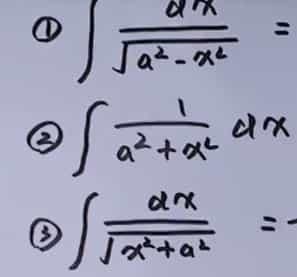 ① ∫ dx/√(a²-x²) =
② ∫ 1/(a²+x²) dx
③ ∫ dx/√(x²+a²) = -